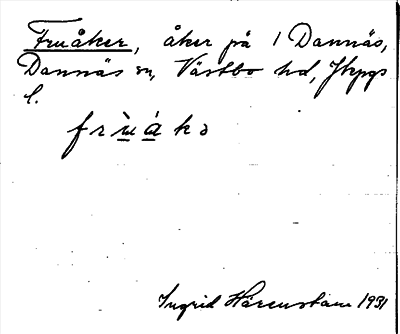 Fruåker, åker på 1 Dannäs,
Dannäs sn, Västbo hd, Jkpgs
l.
frùákə
Ingrid Härenstam 1931